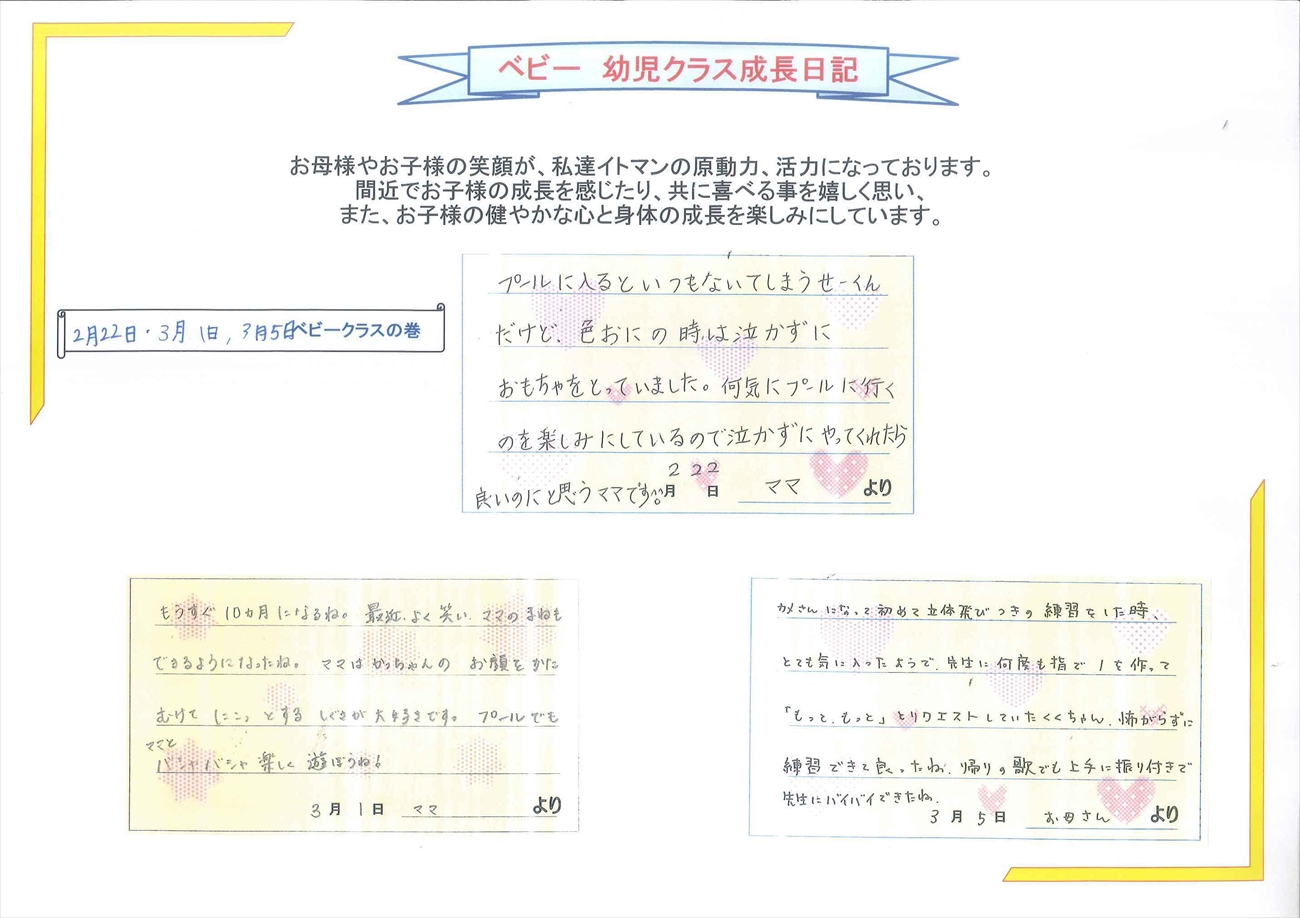 ベビー 幼児クラス成長日記
お母様やお子様の笑顔が、私達イトマンの原動力、活力になっております。
間近でお子様の成長を感じたり、共に喜べる事を嬉しく思い、
また、お子様の健やかな心と身体の成長を楽しみにしています。
2月22日・3月1日,3月5日ベビークラスの巻
プールに入るといつもないてしまうせーくん
だけど、色おにの時は泣かずに
おもちゃをとっていました。何気にプールに行く
のを楽しみにしているので泣かずにやってくれたら
良いのにと思うママです。
2月22日 ママより
もうすぐ10ヵ月になるね。最近、よく笑い、ママのまねも
できるようになったね。ママはかっちゃんのお顔をかた
むけてにこっとするしぐさが大好きです。プールでも
ママと
バシャバシャ楽しく遊ぼうね!
3月1日 ママより
カメさんになって初めて立体飛びつきの練習をした時、
とても気に入ったようで、先生に何度も指で1を作って
「もっと、もっと」とリクエストしていたくくちゃん。怖がらずに
練習できて良かったね。帰りの歌でも上手に振り付きで
先生にバイバイできたね。
3月5日 お母さんより